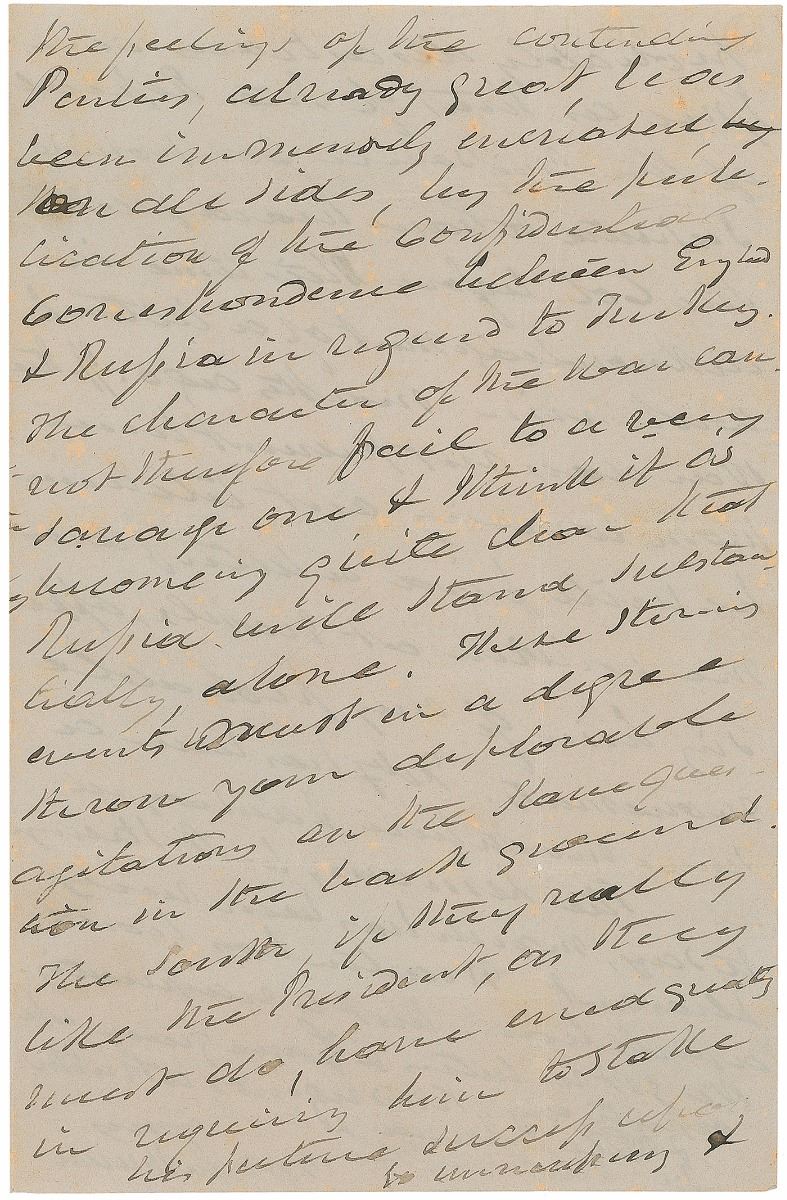 the feelings of the contending
Parties, already great, has
been immensely encreased, by
on all sides, by the pub-
lication of the Confidential
Correspondence between England
& Russia in regard to Turkey.
The character of the War can-
not therefore fail to a very
savage one & I think it is
becoming quite clear that
Russia will stand, substan-
tially, alone. These stirring
events must in a degree
throw your deplorable
agitations on the Slave ques-
tion in the back ground.
The South, if they really
like the President, as they
must do, have erred greatly
in requiring him to stake
his future success upon
so unnecessary &